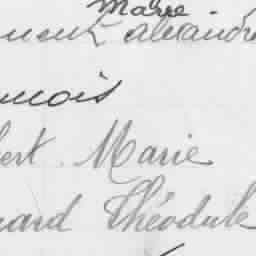 Marie
alexandre
mois
bert Marie
nard Théodule